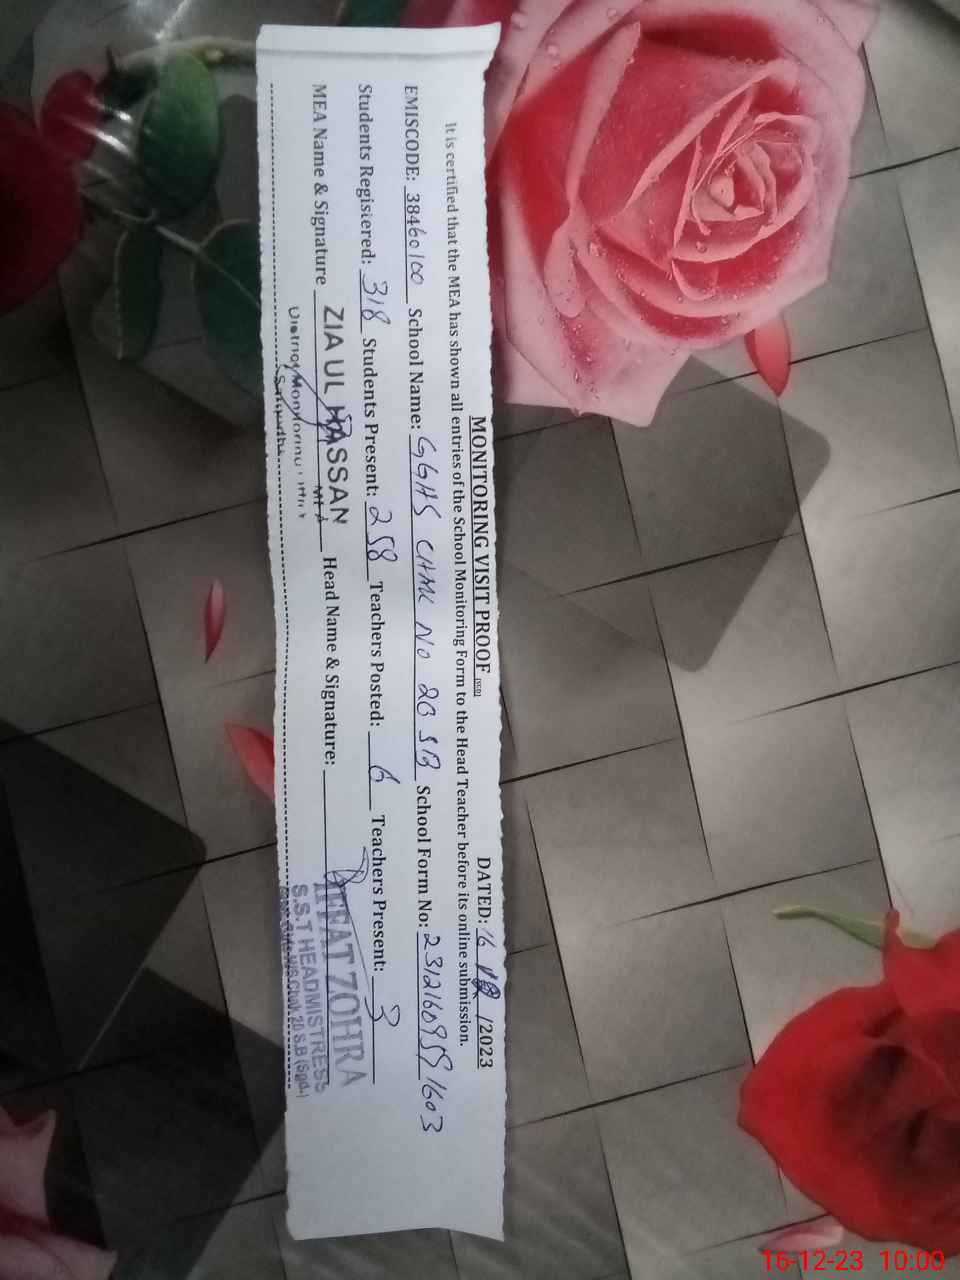 MONITORING VISIT PROOF (SGD) DATED: 16 12 /2023
It is certified that the MEA has shown all entries of the School Monitoring Form to the Head Teacher before its online submission.
EMISCODE: 38460100 School Name: GGHS CHAK NO 20 SB School Form No: 23121609591603
Students Registered: 318 Students Present: 258 Teachers Posted: 6 Teachers Present: 3
MEA Name & Signature ZIA UL HASSAN Head Name & Signature: RIFFAT ZOHRA
MEA S.S.T HEADMISTRESS
District Monitoring Chak 20 S.B (Sgd.)
Sargodha
16-12-23 10:00